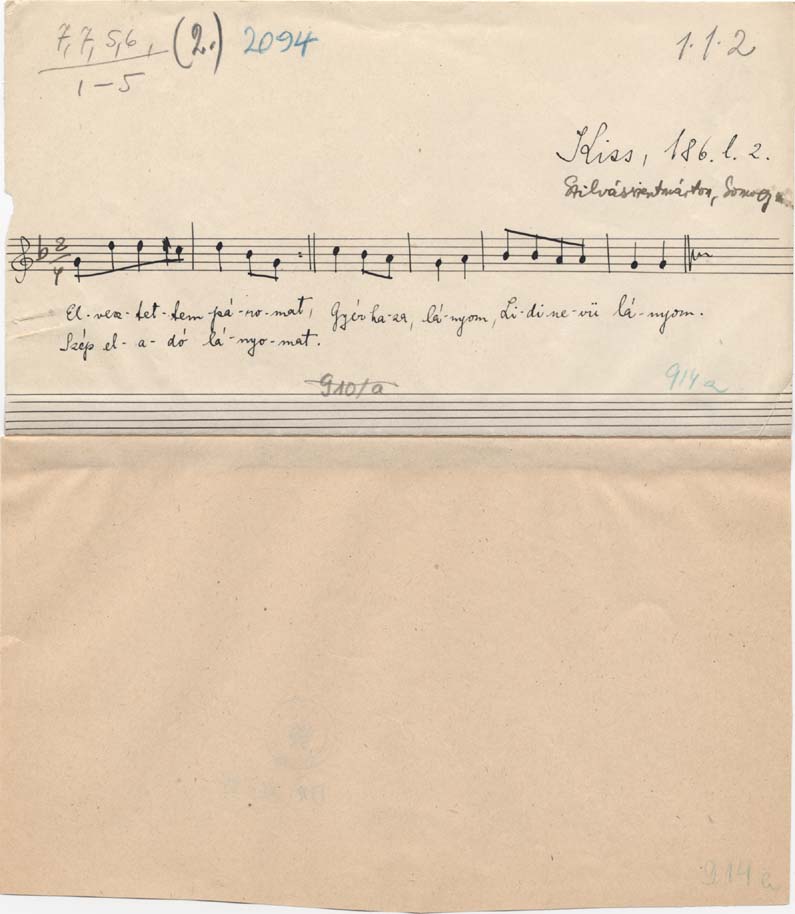 7, 7, 5, 6,
1–5
(2.)
2094
1.1.2
Kiss, 186. l. 2.
Szilvásszentmárton, Somogy
2
4
El-vesz-tet-tem pá-ro-mat, Gyér ha-za, lá-nyom, Li-di ne-vü lá-nyom.
Szép el-a-dó lá-nyo-mat.
910/a
914 a
914 a